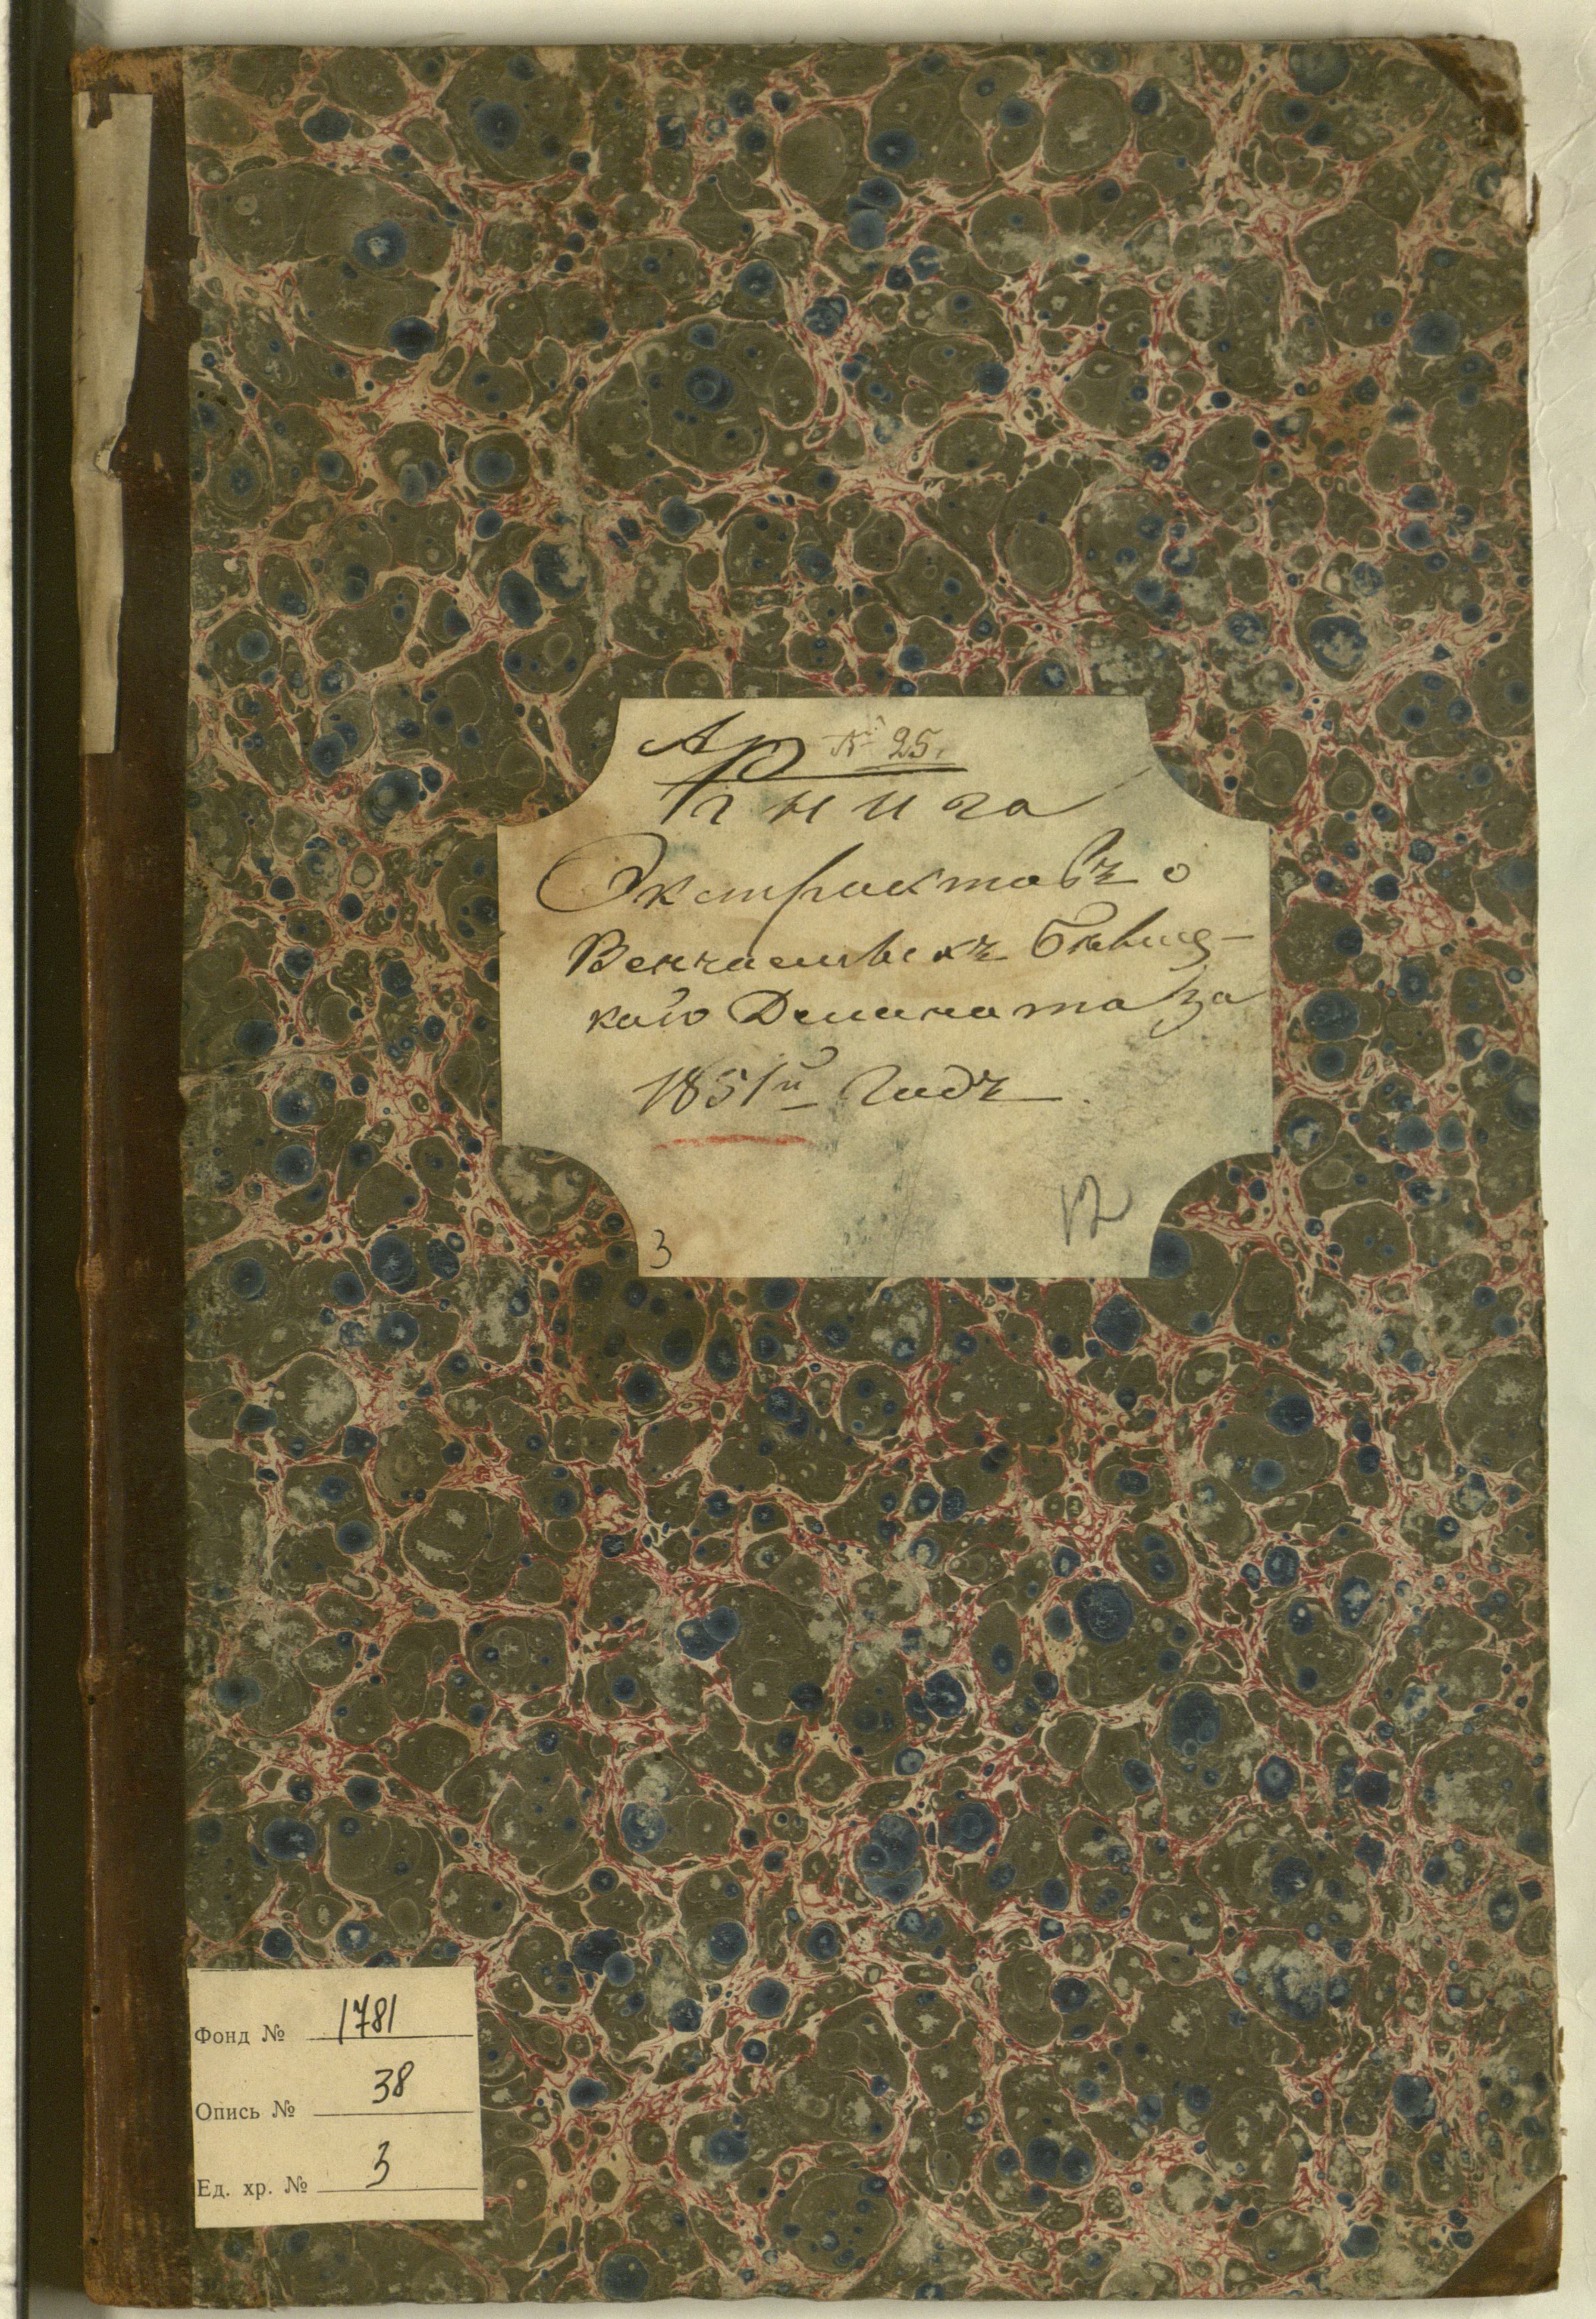 Ар № 25.
Книга
Экстрактовъ о
Венчаныхъ Бѣльц-
каго Деканата за
1851й Годъ.
3
12
Фонд № 1781
Опись № 38
Ед. хр. № 3